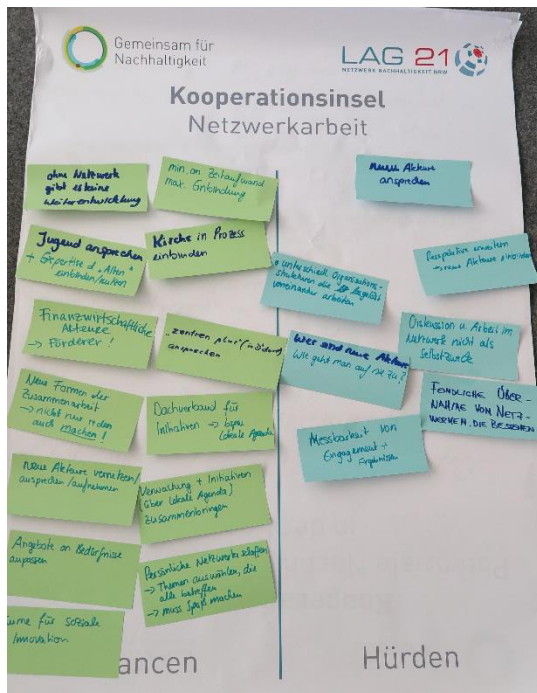 Gemeinsam für
Nachhaltigkeit
LAG 21
NETZWERK NACHHALTIGKEIT NRW
Kooperationsinsel
Netzwerkarbeit
ohne Netzwerk
gibt es keine
Weiterentwicklung
min. an Zeitaufwand
max. Einbindung
Jugend ansprechen
+ Expertise d. "Alten"
einbinden/nutzen
Kirche in Prozess
einbinden
Finanzwirtschaftliche
Akteure
→ Förderer!
"zentren plus"
ansprechen
Neue Formen der
Zusammenarbeit
→ nicht nur reden
auch machen!
Dachverband für
Initiativen → bspw
lokale Agenda
neue Akteure vernetzen/
ansprechen/aufnehmen
Verwaltung + Initiativen
(über lokale Agenda)
zusammenbringen
Angebote an Bedürfnisse
anpassen
Persönliche Netzwerke schaffen
→ Themen auswählen, die
alle betreffen
→ muss Spaß machen
ume für soziale
Innovation
ancen
neue Akteure
ansprechen
Perspektive erweitern
→ neue Akteure einbinden
unterschiedl. Organisations-
strukturen die
voneinander arbeiten
Diskussion u. Arbeit im
Netzwerk nicht als
Selbstzweck
Wer sind neue Akteure
Wie geht man auf sie zu?
FEINDLICHE ÜBER-
NAHME VON NETZ-
WERKEN, DIE BESTEHEN
Messbarkeit von
Engagement +
Ergebnissen
Hürden